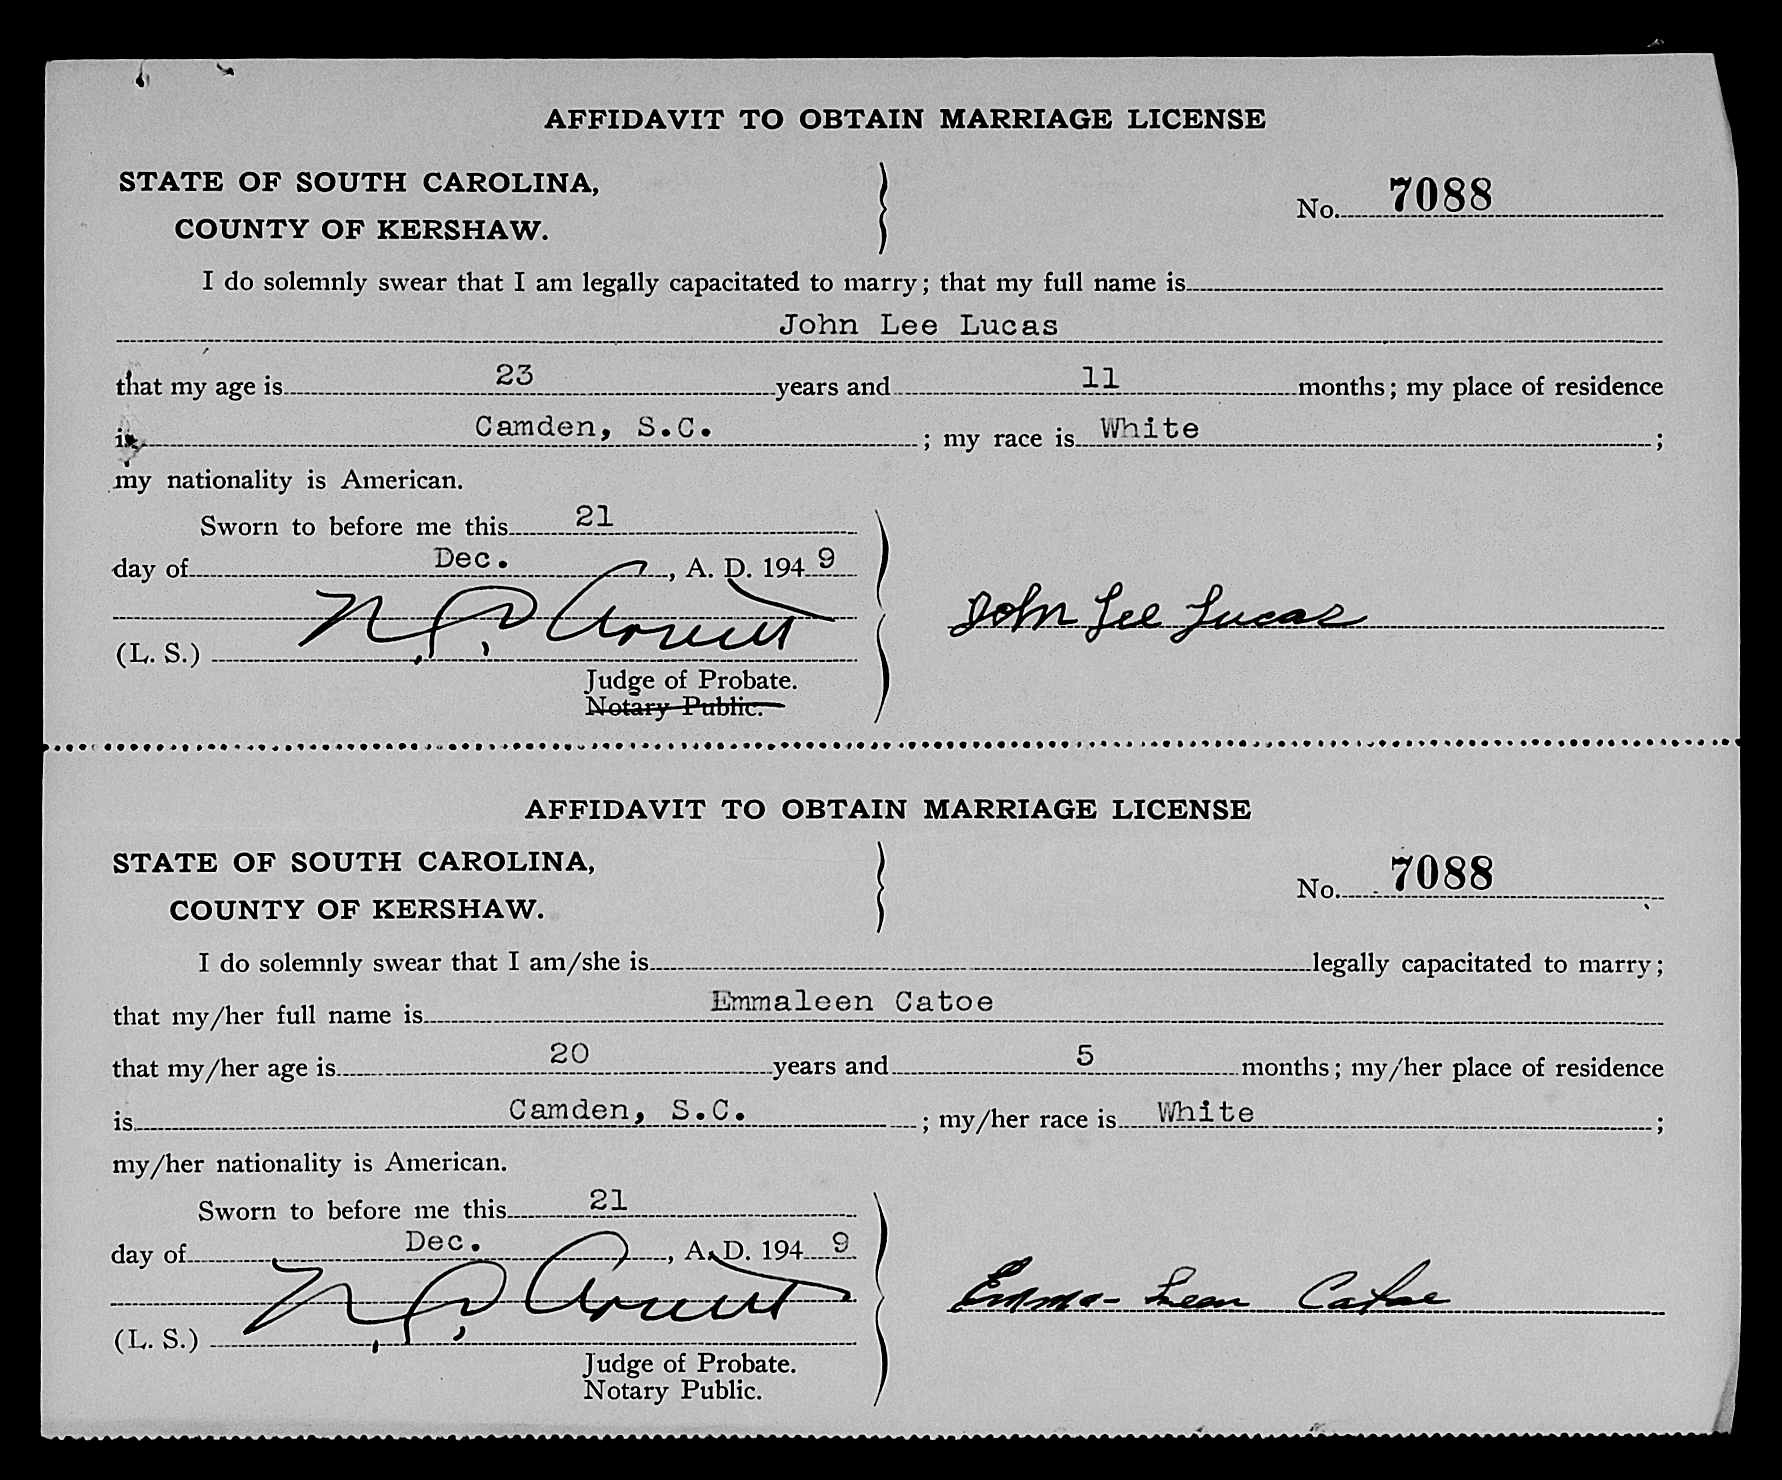 AFFIDAVIT TO OBTAIN MARRIAGE LICENSE
STATE OF SOUTH CAROLINA,
COUNTY OF KERSHAW.
No. 7088
I do solemnly swear that I am legally capacitated to marry; that my full name is
John Lee Lucas
that my age is 23 years and 11 months; my place of residence
is Camden, S.C. ; my race is White ;
my nationality is American.
Sworn to before me this 21
day of Dec. , A. D. 194 9
John Lee Lucas
(L. S.)
Judge of Probate.
Notary Public.
AFFIDAVIT TO OBTAIN MARRIAGE LICENSE
STATE OF SOUTH CAROLINA,
COUNTY OF KERSHAW.
No. 7088
I do solemnly swear that I am/she is legally capacitated to marry;
that my/her full name is Emmaleen Catoe
that my/her age is 20 years and 5 months; my/her place of residence
is Camden, S.C. ; my/her race is White ;
my/her nationality is American.
Sworn to before me this 21
day of Dec. , A. D. 194 9
Emma-Leen Catoe
(L. S.)
Judge of Probate.
Notary Public.